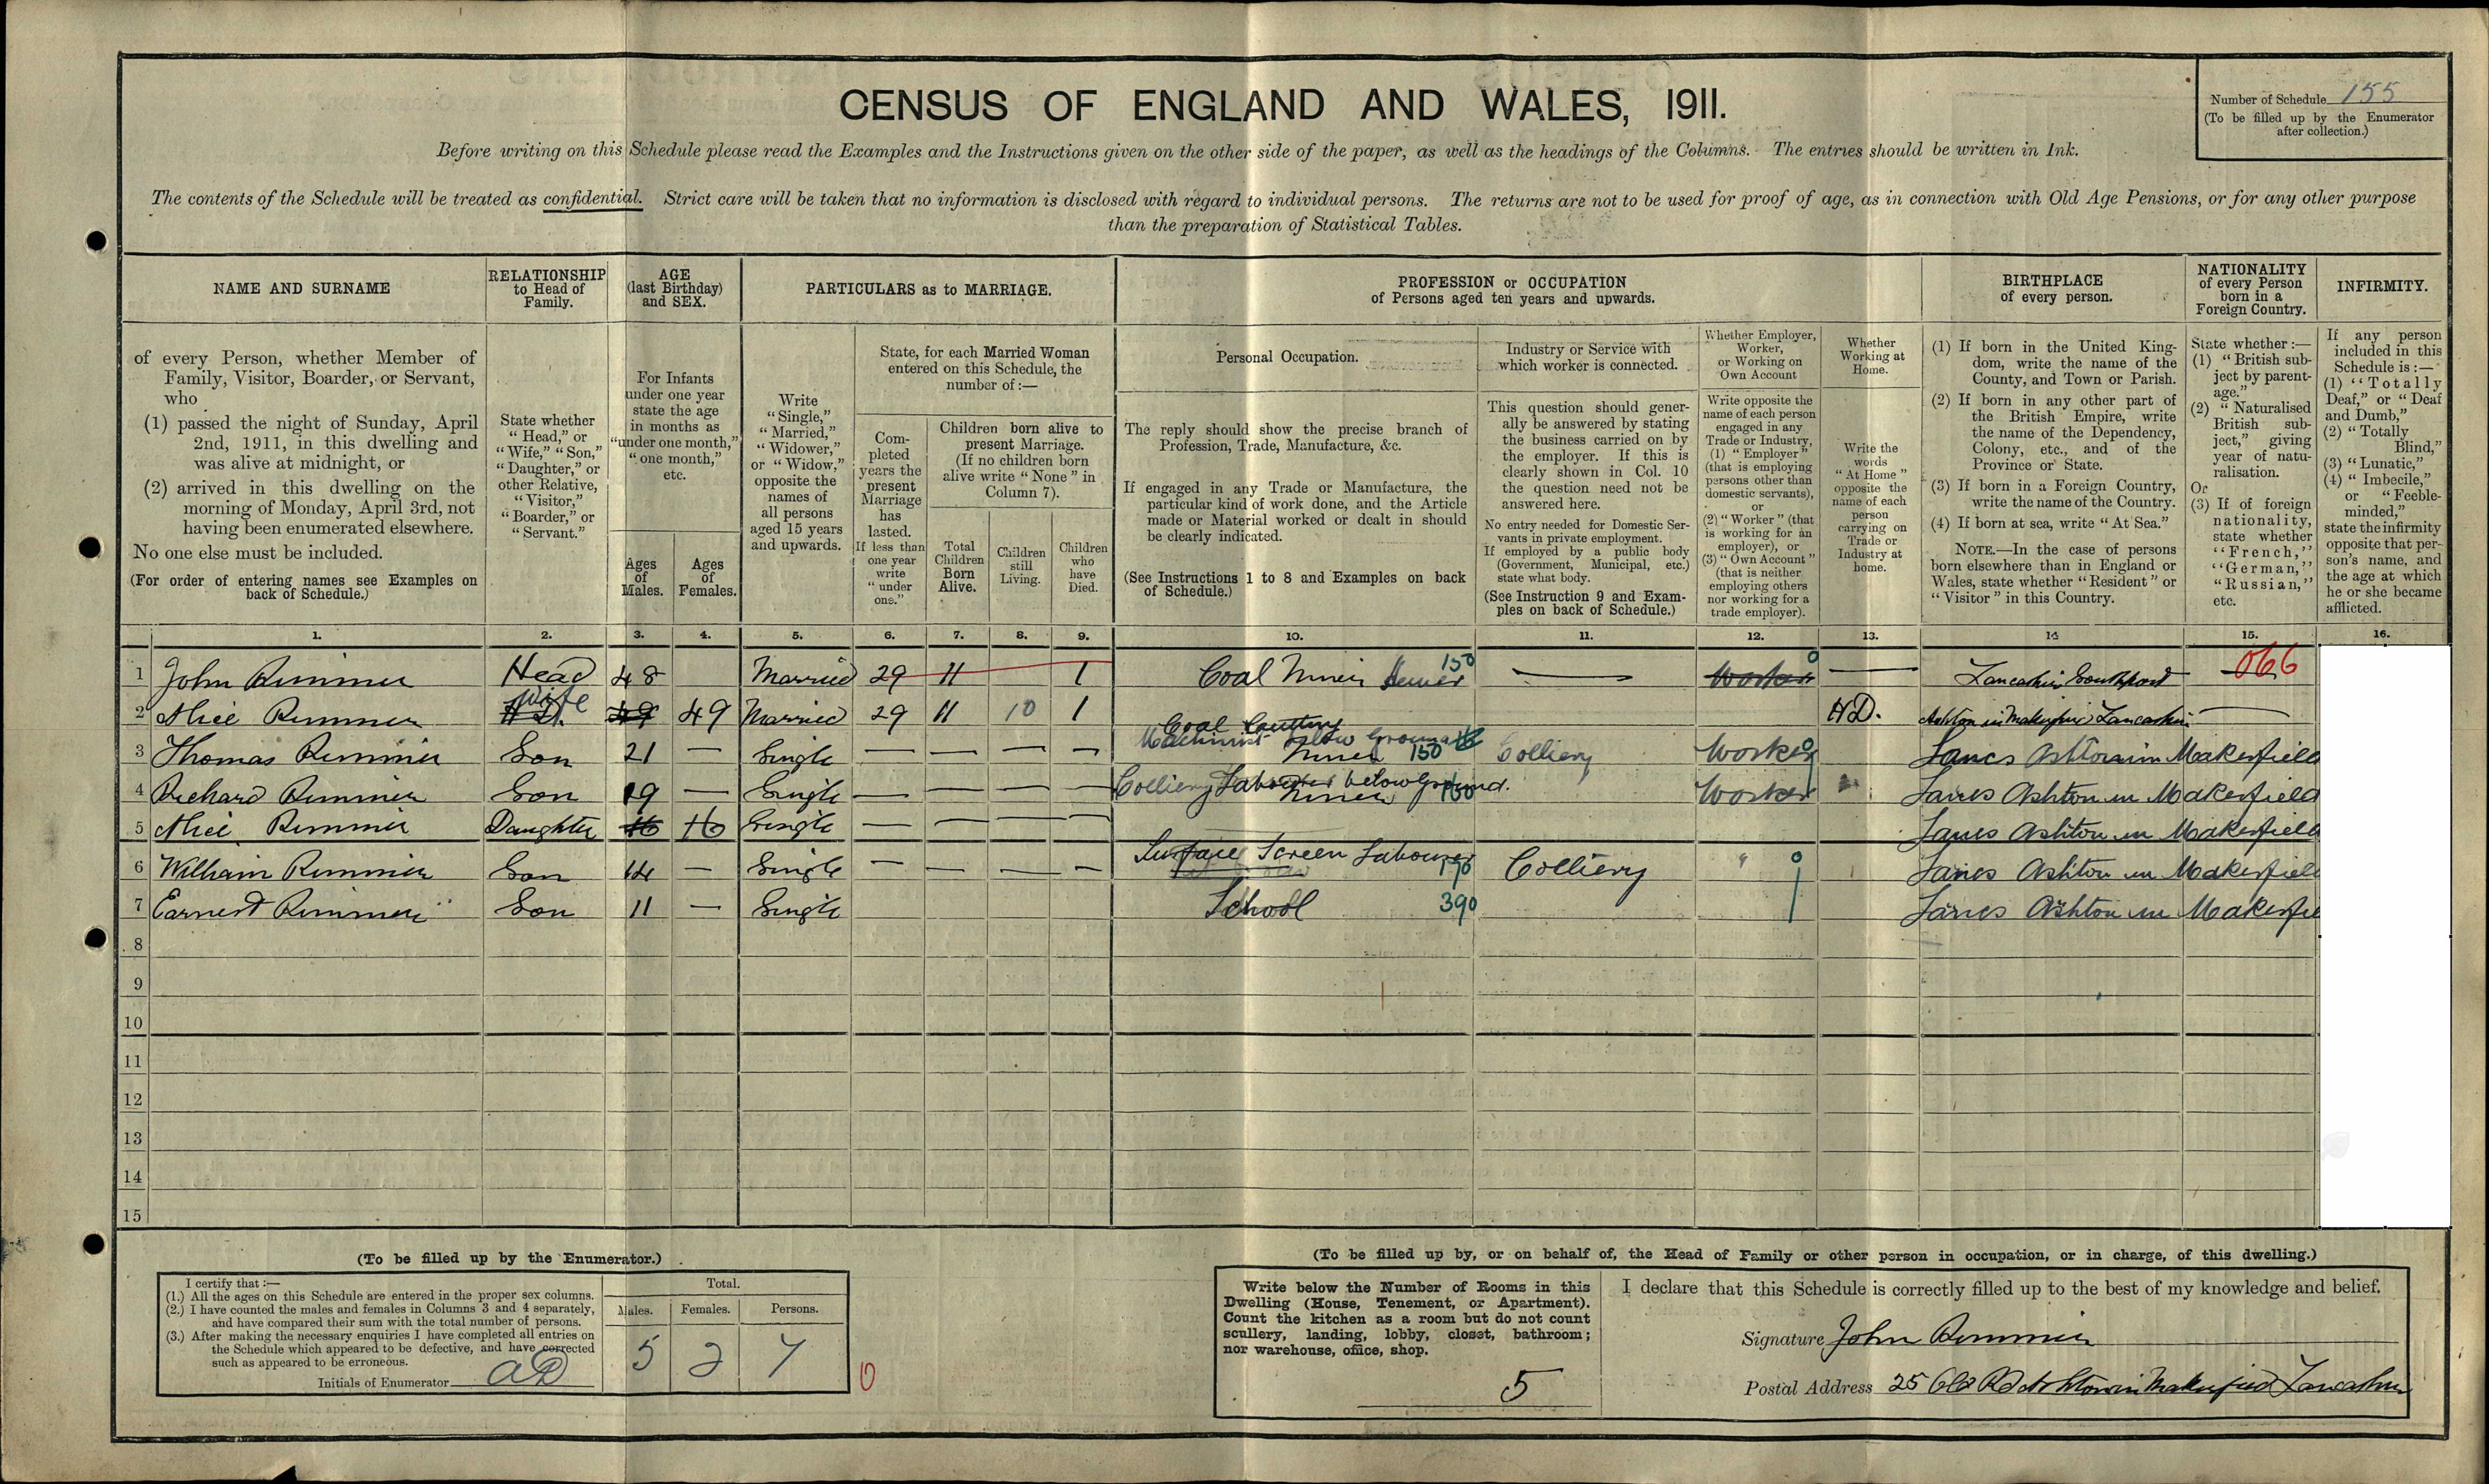 CENSUS OF ENGLAND AND WALES, 1911.
Number of Schedule 155
(To be filled up by the Enumerator
after collection.)
Before writing on this Schedule please read the Examples and the Instructions given on the other side of the paper, as well as the headings of the Columns. The entries should be written in Ink.
The contents of the Schedule will be treated as confidential. Strict care will be taken that no information is disclosed with regard to individual persons. The returns are not to be used for proof of age, as in connection with Old Age Pensions, or for any other purpose
than the preparation of Statistical Tables.
NAME AND SURNAME
of every Person, whether Member of
Family, Visitor, Boarder, or Servant,
who
(1) passed the night of Sunday, April
2nd, 1911, in this dwelling and
was alive at midnight, or
(2) arrived in this dwelling on the
morning of Monday, April 3rd, not
having been enumerated elsewhere.
No one else must be included.
(For order of entering names see Examples on
back of Schedule.)
RELATIONSHIP
to Head of
Family.
State whether
"Head," or
"Wife," "Son,"
"Daughter," or
other Relative,
"Visitor,"
"Boarder," or
"Servant."
AGE
(last Birthday)
and SEX.
For Infants
under one year
state the age
in months as
"under one month,"
"one month,"
etc.
Ages
of
Males.
Ages
of
Females.
PARTICULARS as to MARRIAGE.
Write
"Single,"
"Married,"
"Widower,"
or "Widow,"
opposite the
names of
all persons
aged 15 years
and upwards.
State, for each Married Woman
entered on this Schedule, the
number of:—
Com-
pleted
years the
present
Marriage
has
lasted.
If less than
one year
write
"under
one."
Children born alive to
present Marriage.
(If no children born
alive write "None" in
Column 7).
Total
Children
Born
Alive.
Children
still
Living.
Children
who
have
Died.
PROFESSION or OCCUPATION
of Persons aged ten years and upwards.
Personal Occupation.
The reply should show the precise branch of
Profession, Trade, Manufacture, &c.
If engaged in any Trade or Manufacture, the
particular kind of work done, and the Article
made or Material worked or dealt in should
be clearly indicated.
(See Instructions 1 to 8 and Examples on back
of Schedule.)
Industry or Service with
which worker is connected.
This question should gener-
ally be answered by stating
the business carried on by
the employer. If this is
clearly shown in Col. 10
the question need not be
answered here.
No entry needed for Domestic Ser-
vants in private employment.
If employed by a public body
(Government, Municipal, etc.)
state what body.
(See Instruction 9 and Exam-
ples on back of Schedule.)
Whether Employer,
Worker,
or Working on
Own Account
Write opposite the
name of each person
engaged in any
Trade or Industry,
(1) "Employer"
(that is employing
persons other than
domestic servants),
or
(2) "Worker" (that
is working for an
employer), or
(3) "Own Account"
(that is neither
employing others
nor working for a
trade employer).
Whether
Working at
Home.
Write the
words
"At Home"
opposite the
name of each
person
carrying on
Trade or
Industry at
home.
BIRTHPLACE
of every person.
(1) If born in the United King-
dom, write the name of the
County, and Town or Parish.
(2) If born in any other part of
the British Empire, write
the name of the Dependency,
Colony, etc., and of the
Province or State.
(3) If born in a Foreign Country,
write the name of the Country.
(4) If born at sea, write "At Sea."
NOTE.—In the case of persons
born elsewhere than in England or
Wales, state whether "Resident" or
"Visitor" in this Country.
NATIONALITY
of every Person
born in a
Foreign Country.
State whether:—
(1) "British sub-
ject by parent-
age."
(2) "Naturalised
British sub-
ject," giving
year of natu-
ralisation.
Or
(3) If of foreign
nationality,
state whether
"French,"
"German,"
"Russian,"
etc.
INFIRMITY.
If any person
included in this
Schedule is:—
(1) "Totally
Deaf," or "Deaf
and Dumb,"
(2) "Totally
Blind,"
(3) "Lunatic,"
(4) "Imbecile,"
or "Feeble-
minded,"
state the infirmity
opposite that per-
son's name, and
the age at which
he or she became
afflicted.
1. 2. 3. 4. 5. 6. 7. 8. 9. 10. 11. 12. 13. 14 15. 16.
1 John Rimmer Head 48 Married 29 11 1 Coal Miner Hewer 150 — Worker 0 — Lancashire Southport 066
2 Alice Rimmer Wife 49 49 Married 29 11 10 1 HD. Ashton in Makerfield Lancashire —
3 Thomas Rimmer Son 21 — Single — — — — Coal Cutting Machinist Below Ground Miner 150 Colliery Worker 0 Lancs Ashton in Makerfield
4 Richard Rimmer Son 19 — Single — — — — Colliery Labourer below Ground. Miner Worker Lancs Ashton in Makerfield
5 Alice Rimmer Daughter 16 16 Single — — — — Lancs Ashton in Makerfield
6 William Rimmer Son 14 — Single — — — — Surface Screen Labourer 190 Colliery " 0 Lancs Ashton in Makerfield
7 Earnest Rimmer Son 11 — Single School 390 Lancs Ashton in Makerfie
8
9
10
11
12
13
14
15
(To be filled up by the Enumerator.)
I certify that:—
(1.) All the ages on this Schedule are entered in the proper sex columns.
(2.) I have counted the males and females in Columns 3 and 4 separately,
and have compared their sum with the total number of persons.
(3.) After making the necessary enquiries I have completed all entries on
the Schedule which appeared to be defective, and have corrected
such as appeared to be erroneous.
Initials of Enumerator AD
Total.
Males. Females. Persons.
5 2 7
0
(To be filled up by, or on behalf of, the Head of Family or other person in occupation, or in charge, of this dwelling.)
Write below the Number of Rooms in this
Dwelling (House, Tenement, or Apartment).
Count the kitchen as a room but do not count
scullery, landing, lobby, closet, bathroom;
nor warehouse, office, shop.
5
I declare that this Schedule is correctly filled up to the best of my knowledge and belief.
Signature John Rimmer
Postal Address 25 Old Rd Ashton in Makerfield Lancashire